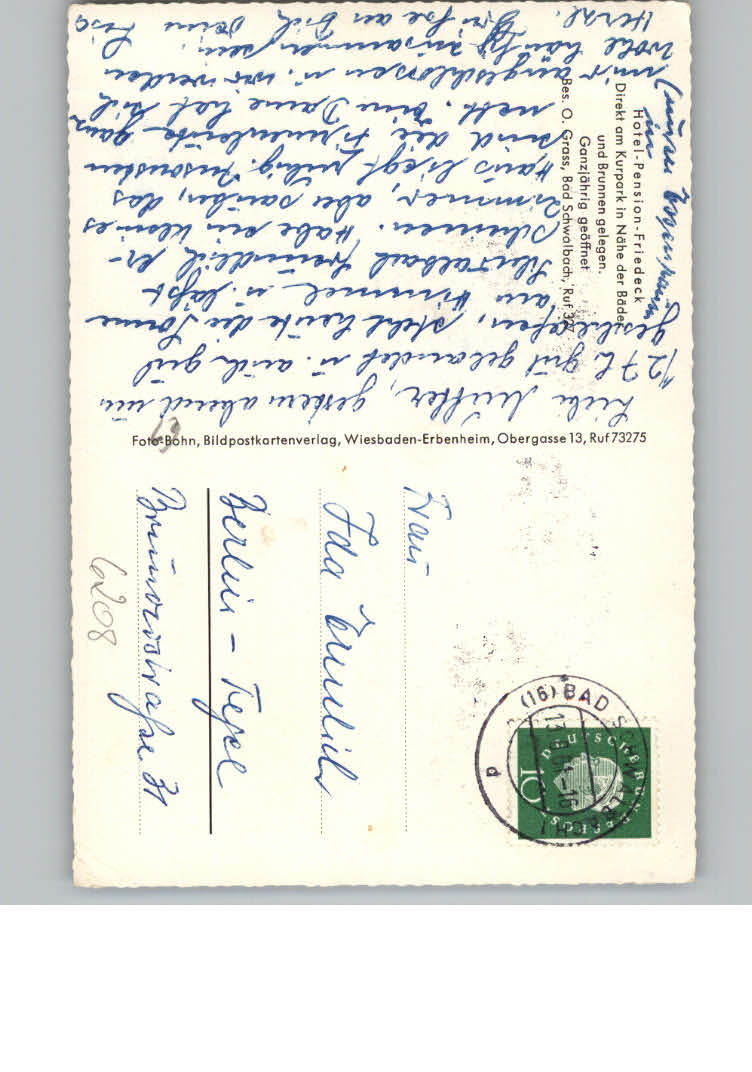 Hotel-Pension-Friedeck
Direkt am Kurpark in Nähe der Bäder
und Brunnen gelegen.
Ganzjährig geöffnet
Bes. O. Grass, Bad Schwalbach, Ruf 327
Liebe Mutter, gestern abend um
1/2 7 h gut gelandet u. auch gut
geschlafen, steht heute die Sonne
am Himmel u. läßt
Schwalbach freundlich er-
scheinen. Habe ein kleines
Zimmer, aber sauber, das
Haus liegt ruhig. Ansonsten
sind die Zimmerleute ganz
nett. Eine Dame hat sich
mir angeschlossen u. wir werden
wohl häufig zusammen sein.
Herzl. Grüße an Dich, Deine
Foto-Bohn, Bildpostkartenverlag, Wiesbaden-Erbenheim, Obergasse 13, Ruf 73275
Frau
Ida
Berlin - Tegel
Brunowstraße 31
6208
(16) BAD SCHWALBACH 1
-16
d
DEUTSCHE BUNDESPOST
10